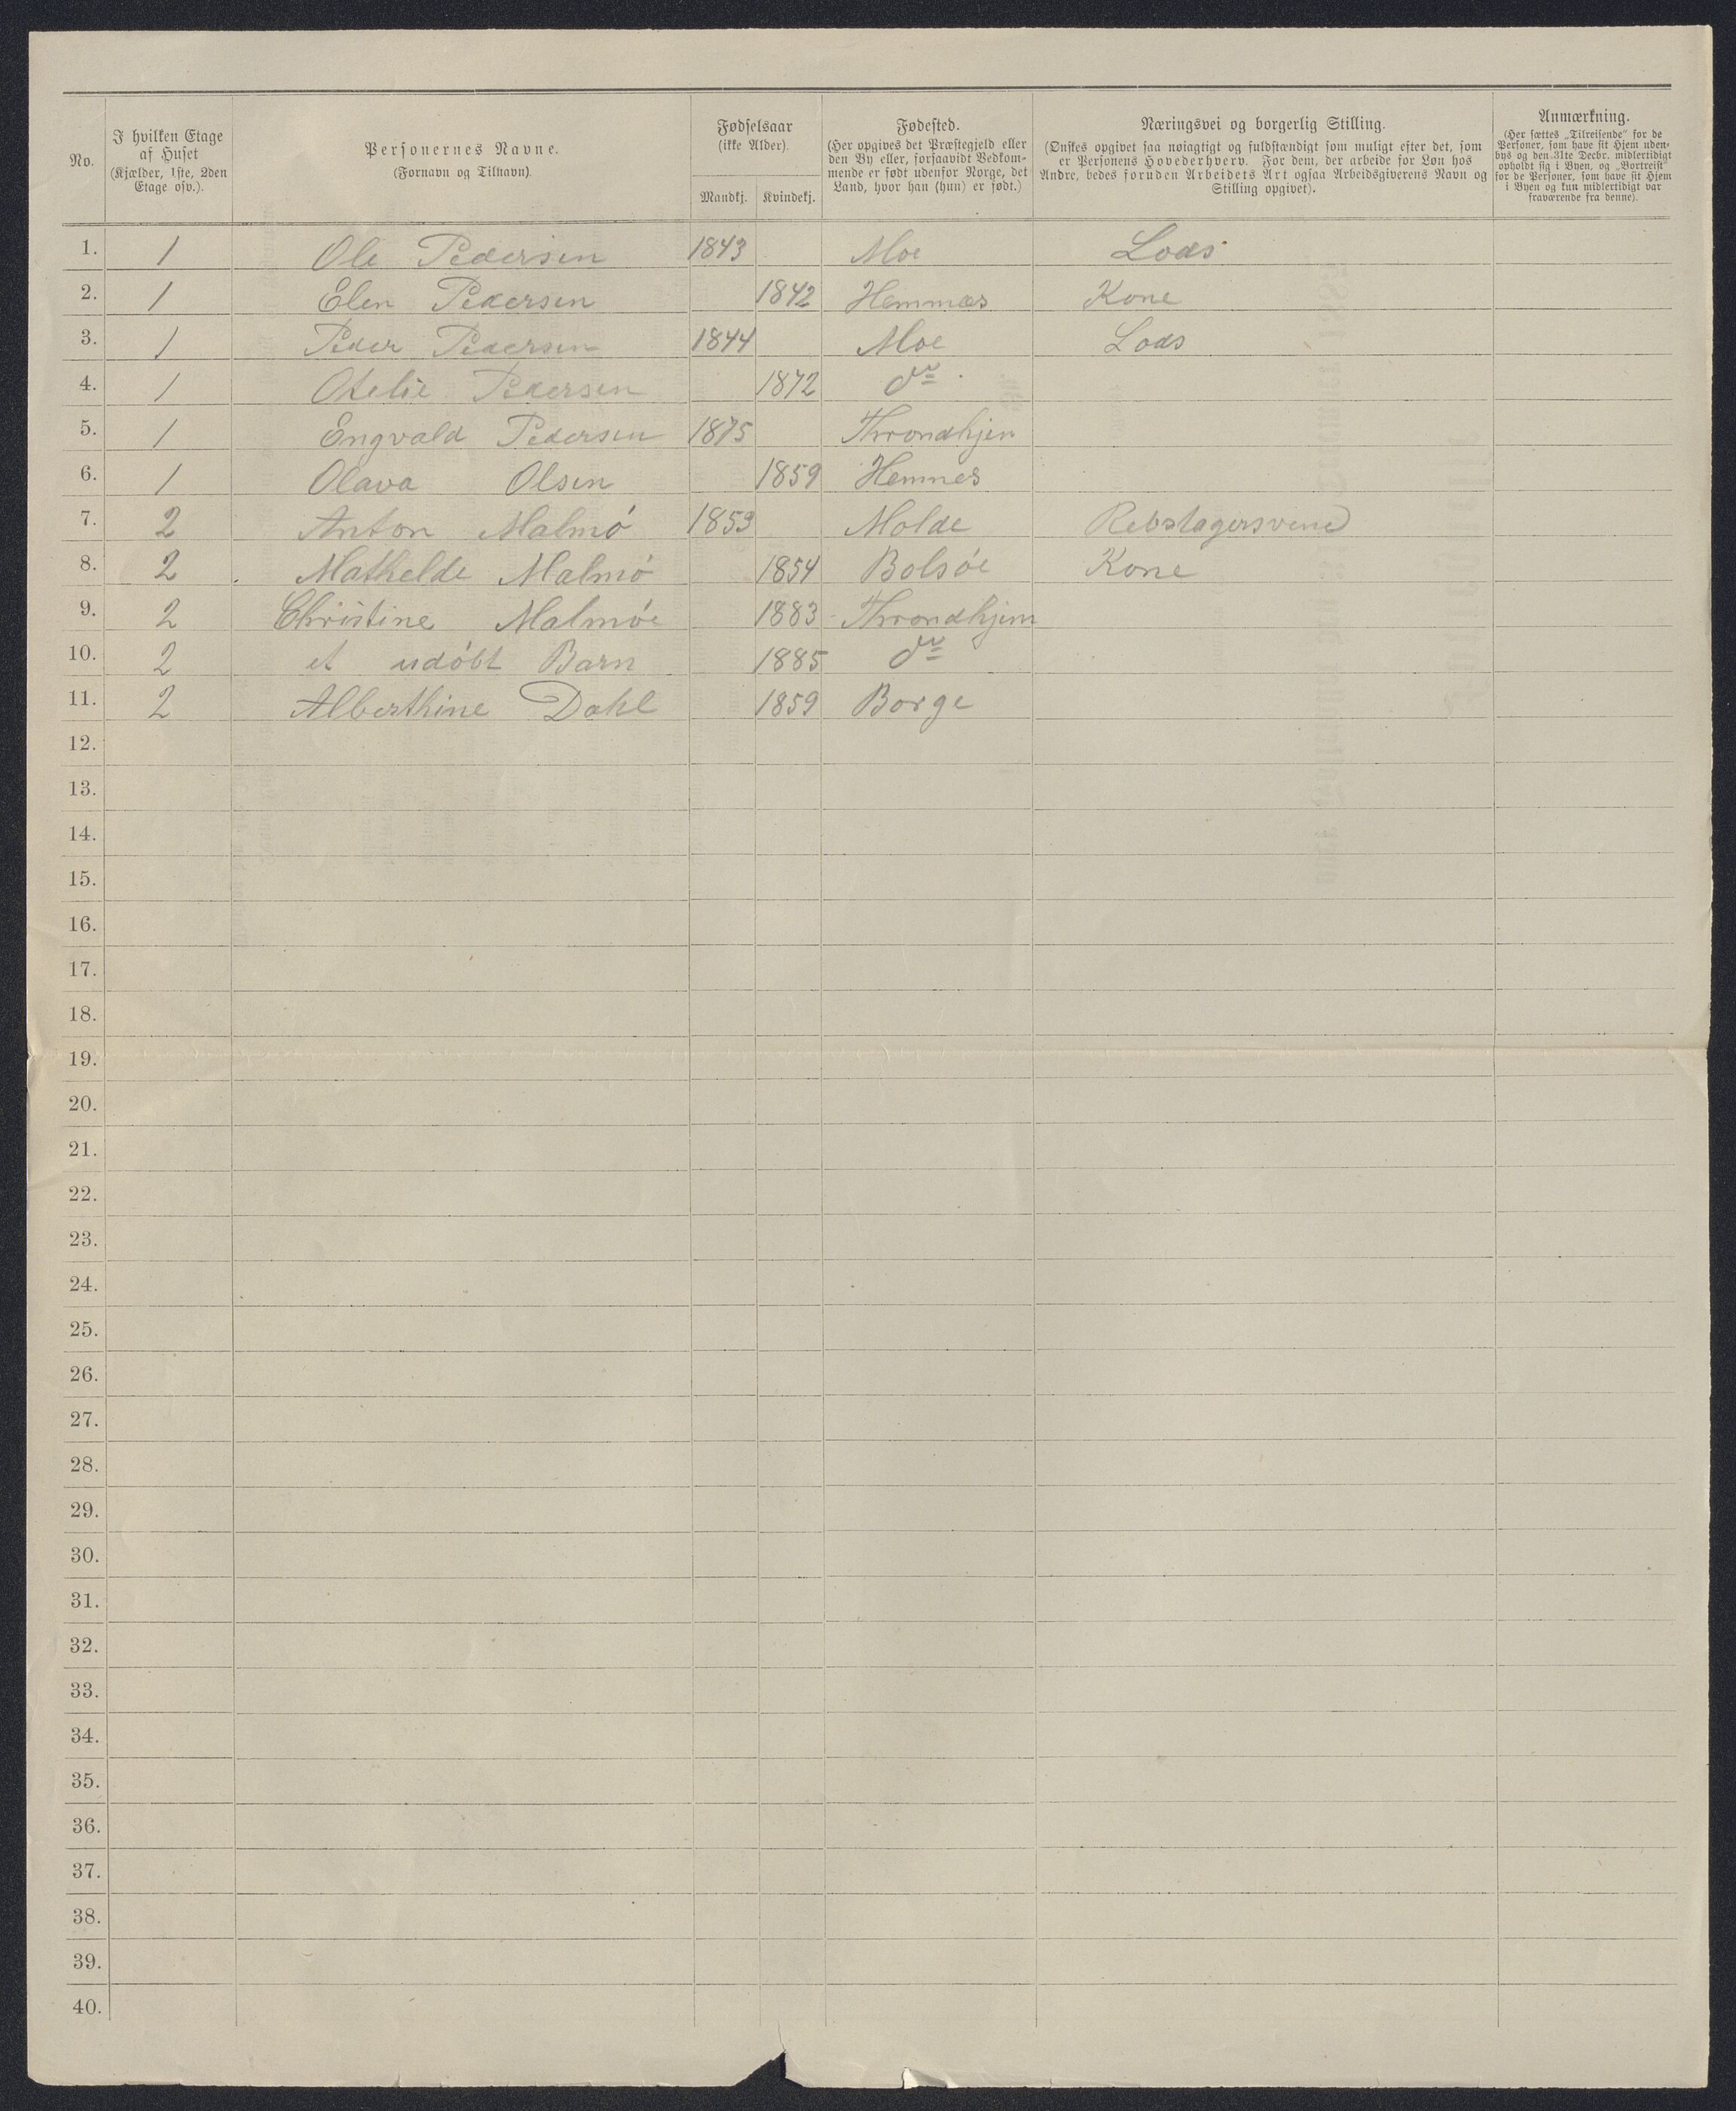 No. I hvilken Etage af Huset (Kjælder, 1ste, 2den Etage osv.). Personernes Navne. (Fornavn og Tilnavn). Fødselsaar (ikke Alder). Mandkj. Kvindekj. Fødested. (Her opgives det Præstegjeld eller den By eller, forsaavidt Vedkommende er født udenfor Norge, det Land, hvor han (hun) er født.) Næringsvei og borgerlig Stilling. (Ønskes opgivet saa nøiagtigt og fuldstændigt som muligt efter det, som er Personens Hovederhverv. For dem, der arbeide for Løn hos Andre, bedes foruden Arbeidets Art ogsaa Arbeidsgiverens Navn og Stilling opgivet). Anmærkning. (Her sættes „Tilreisende" for de Personer, som have sit Hjem udenbys og den 31te Decbr. midlertidigt opholdt sig i Byen, og „Bortreist" for de Personer, som have sit Hjem i Byen og kun midlertidigt var fraværende fra denne).
1. 1 Ole Pedersen 1843 Moe Lods
2. 1 Elen Pedersen 1842 Hemmæs Kone
3. 1 Peder Pedersen 1844 Moe Lods
4. 1 Otelie Pedersen 1872 do
5. 1 Engvald Pedersen 1875 Throndhjen
6. 1 Olava Olsen 1859 Hemnes
7. 2 Anton Malmö 1853 Molde Rebslagersvend
8. 2 Mathelde Malmö 1854 Bolsöe Kone
9. 2 Christine Malmöe 1883 Throndhjem
10. 2 et udöbt Barn 1885 do
11. 2 Alberthine Dahl 1859 Borge
12.
13.
14.
15.
16.
17.
18.
19.
20.
21.
22.
23.
24.
25.
26.
27.
28.
29.
30.
31.
32.
33.
34.
35.
36.
37.
38.
39.
40.